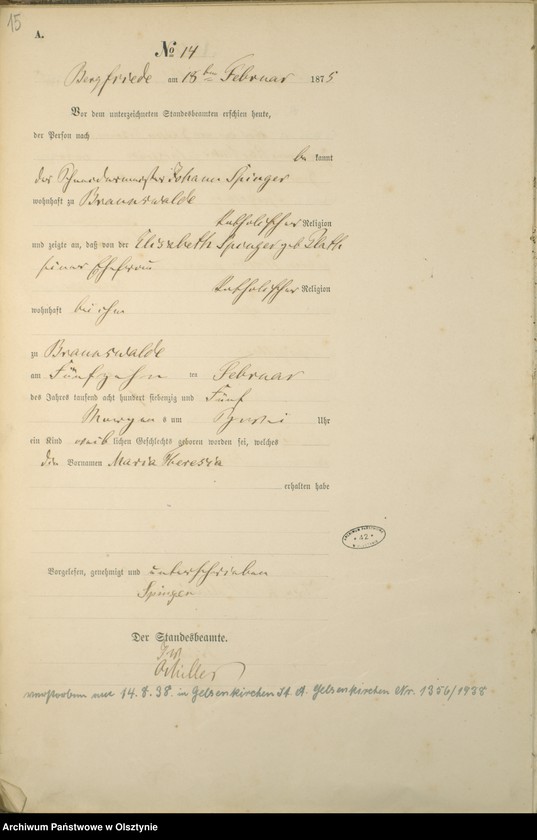 15
A.
No 14
Bergfriede am 18ten Februar 1875
Vor dem unterzeichneten Standesbeamten erschien heute,
der Person nach
be kannt
der Schneidermeister Johann Spinger
wohnhaft zu Braunswalde
katholischer Religion
und zeigte an, daß von der Elisabeth Spinger geb.
seiner Ehefrau
katholischer Religion
wohnhaft bei ihm
zu Braunswalde
am Fünfzehn ten Februar
des Jahres tausend acht hundert siebenzig und Fünf
Morgen s um Uhr
ein Kind weib lichen Geschlechts geboren worden sei, welches
die Vornamen Maria Theresia
erhalten habe
Vorgelesen, genehmigt und unterschrieben
Spinger
Der Standesbeamte.
Schiller
verstorben am 14.8.38. in Gelsenkirchen St. A. Gelsenkirchen Nr. 1356/1938
42
Archiwum Państwowe w Olsztynie